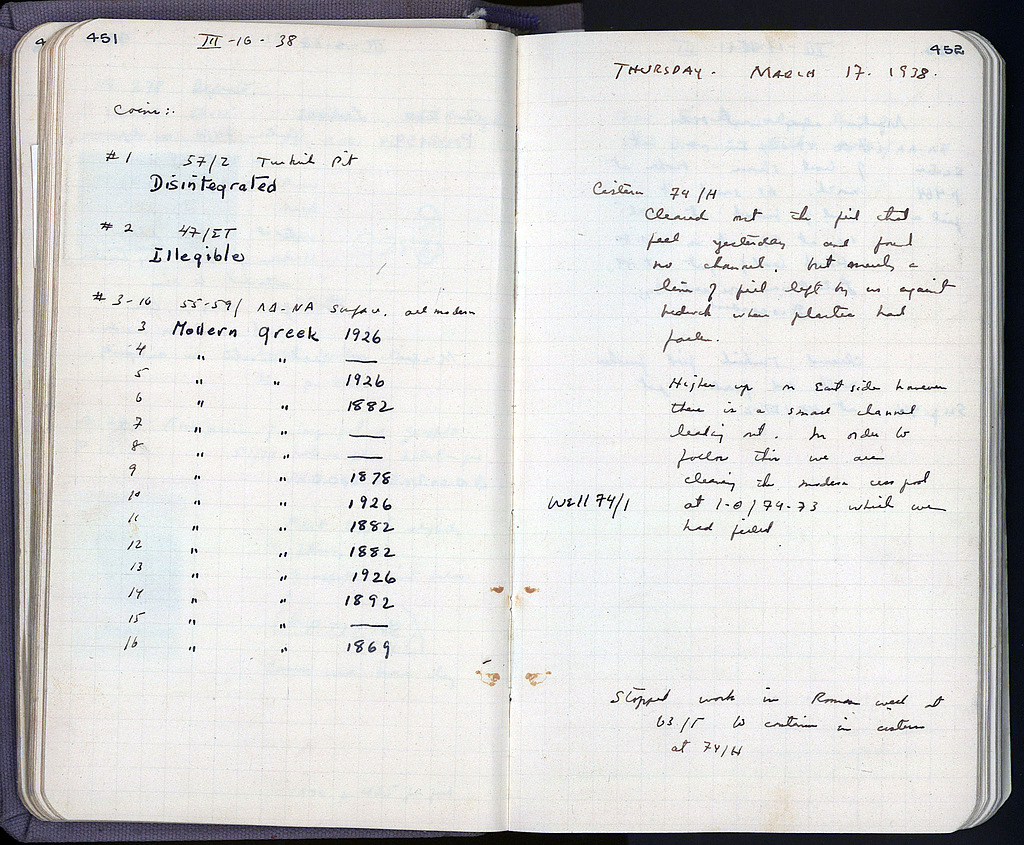 451
III-16-38
Coins:-
#1 57/Σ Turkish Pit
Disintegrated
#2 47/ΣΤ
Illegible
#3-16 55-59/ ΛΔ-ΝΑ surface. all modern
3 Modern Greek 1926
4 " " —
5 " " 1926
6 " " 1882
7 " " —
8 " " —
9 " " 1878
10 " " 1926
11 " " 1882
12 " " 1882
13 " " 1926
14 " " 1892
15 " " —
16 " " 1869
452
THURSDAY. MARCH 17. 1938.
Cistern 74/H
Cleared out the fill that
fell yesterday and found
no channel, but merely a
line of fill left by us against
bedrock when plaster had
fallen.
Higher up on East side however
there is a small channel
leading out. In order to
follow this we are
clearing the modern cesspool
Well 74/1 at 74-73 which we
had filled
Stopped work in Roman well at
63/ to continue in cistern
at 74/H